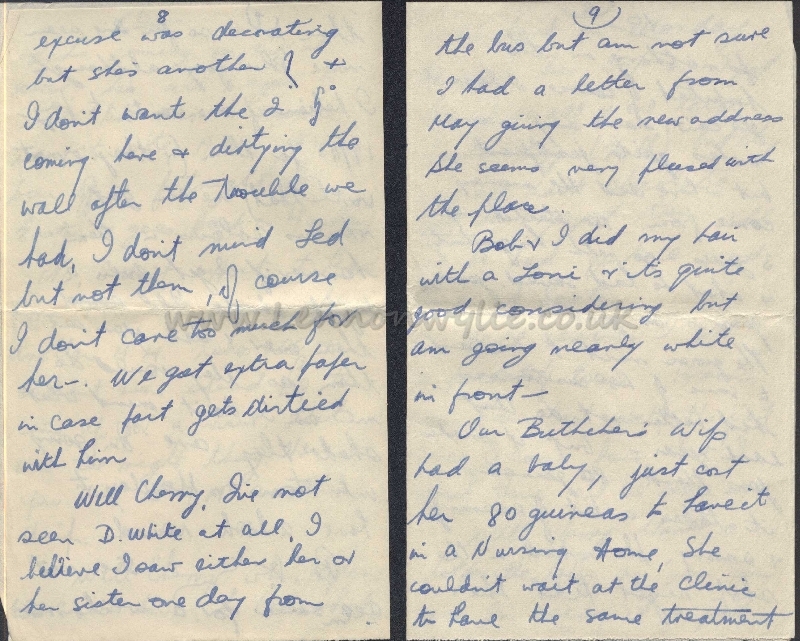 8
excuse was decorating
but she's another } &
I don't want the 2 G's
coming here & dirtying the
wall after the trouble we
had, I don't mind Led
but not them, of course
I don't care too much for
her —. We got extra paper
in case part gets dirtied
with him
Well Cherry, I've not
seen D. White at all, I
believe I saw either her or
her sister one day from
9
the bus but am not sure
I had a letter from
May giving the new address
She seems very pleased with
the place.
Bob & I did my hair
with a Toni & its quite
good considering but
am going nearly white
in front —
Our Buthcher's Wife
had a baby, just cost
her 80 guineas to have it
in a Nursing Home, She
couldn't wait at the Clinic
to have the same treatment